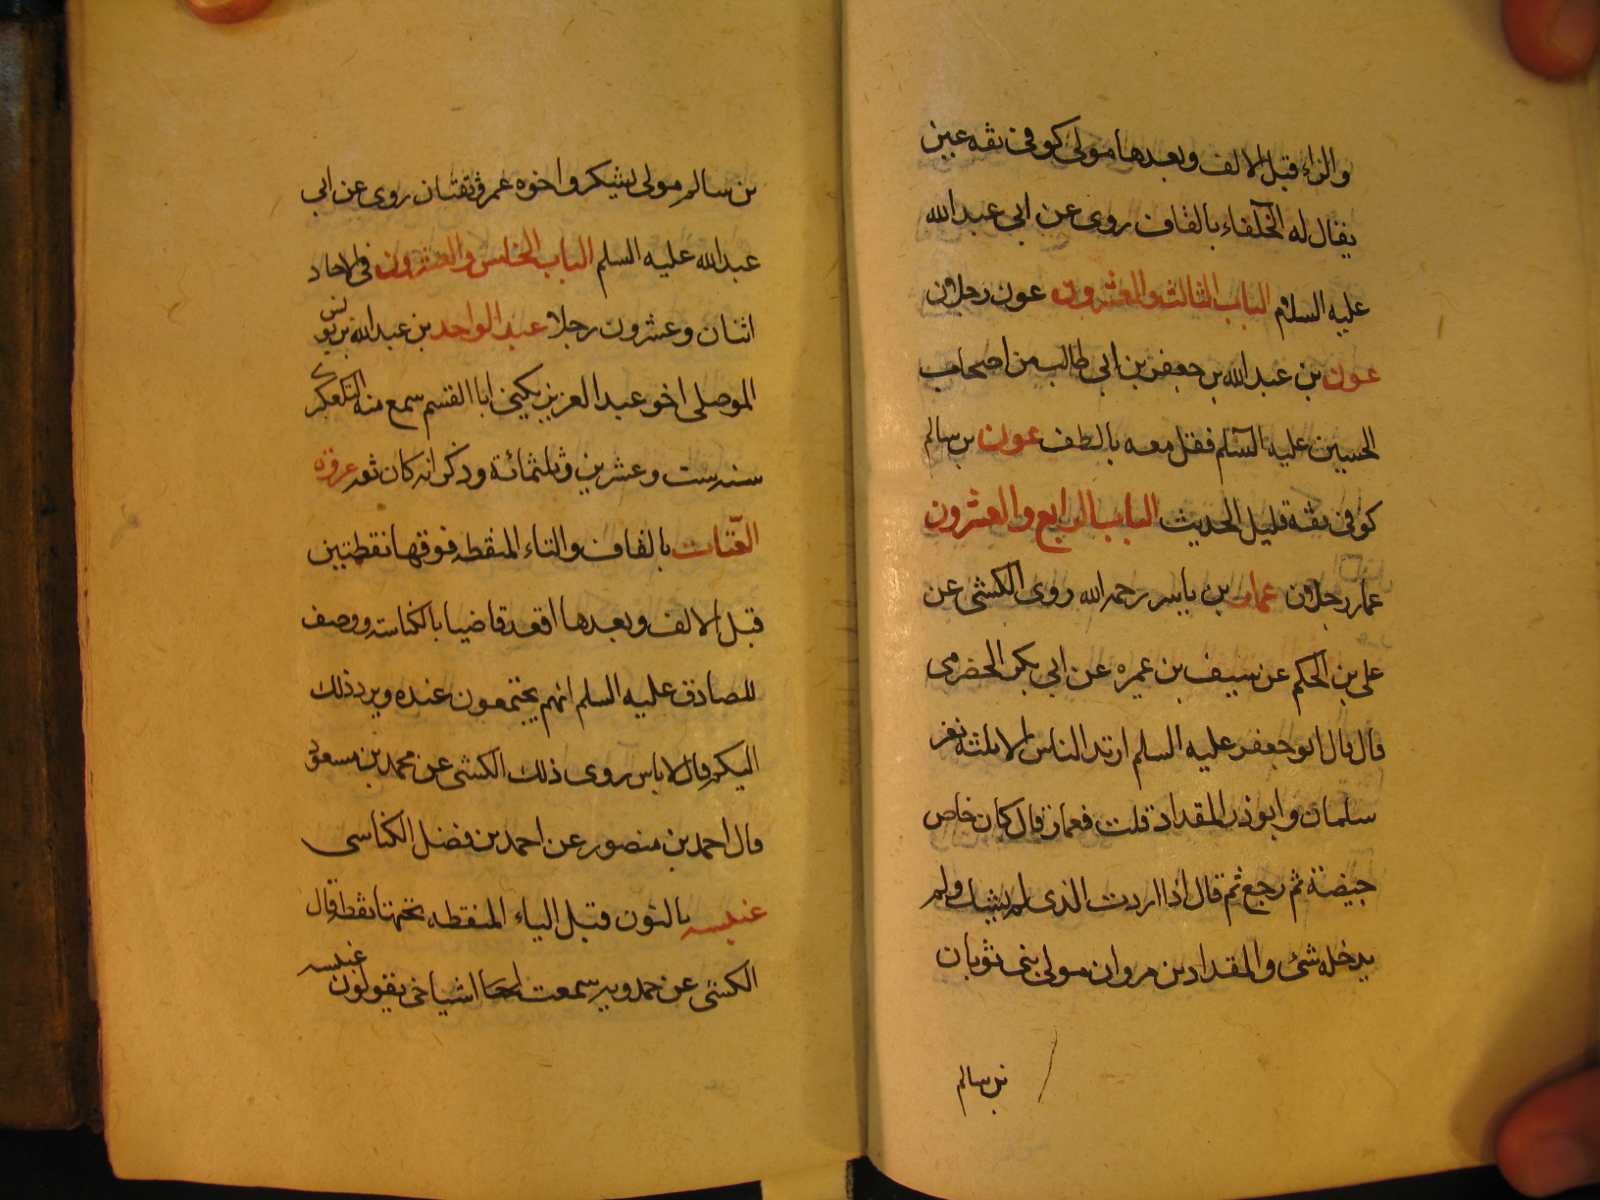 والزاء قبل الالف وبعدها مولى كوفى ثقه عين
يقال له الخلقاء بالقاف روى عن ابى عبد الله
عليه السلام الباب الثالث والعشرون عون رجلان
عون بن عبد الله بن جعفر بن ابى طالب من اصحاب
الحسين عليه السلام فقتل معه بالطف عون بن سالم
كوفى ثقة قليل الحديث الباب الرابع والعشرون
عمار رجلان عمار بن ياسر رحمه الله روى الكشى عن
على بن الحكم عن سيف بن عميره عن ابى بكر الحضرمى
قال قال ابو جعفر عليه السلم ارتد الناس الا ثلثه نفر
سلمان وابوذر المقداد قلت فعمار قال كان خاص
جيضة ثم رجع ثم قال اذا اردت الذى لم يشك ولم
يدخله شئ والمقداد بن مروان مولى بنى ثوبان
بن سالم
بن سالم مولى يشكر واخوه عمر ثقتان روى عن ابى
عبد الله عليه السلم الباب الخامس والعشرون فى الاحاد
اثنان وعشرون رجلا عبد الواحد بن عبد الله بن يونس
الموصلى اخو عبد العزيز يكنى ابا القسم سمع منه التلعكبرى
سنه ست وعشرين وثلثمائة وذكر انه كان ثقه عروه
القتات بالقاف والتاء المنقطه فوقها نقطتين
قبل الالف وبعدها اقعد قاضيا بالكناسه ووصف
للصادق عليه السلم انهم يجتمعون عنده ويرد ذلك
اليكم قال لا باس روى ذلك الكشى عن محمد بن مسعود
قال احمد بن منصور عن احمد بن فضل الكناسى
عنبسه بالنون قبل الباء المنقطه تحتها نقطه قال
الكشى عن حمدويه سمعت اشياخى يقولون عنبسه